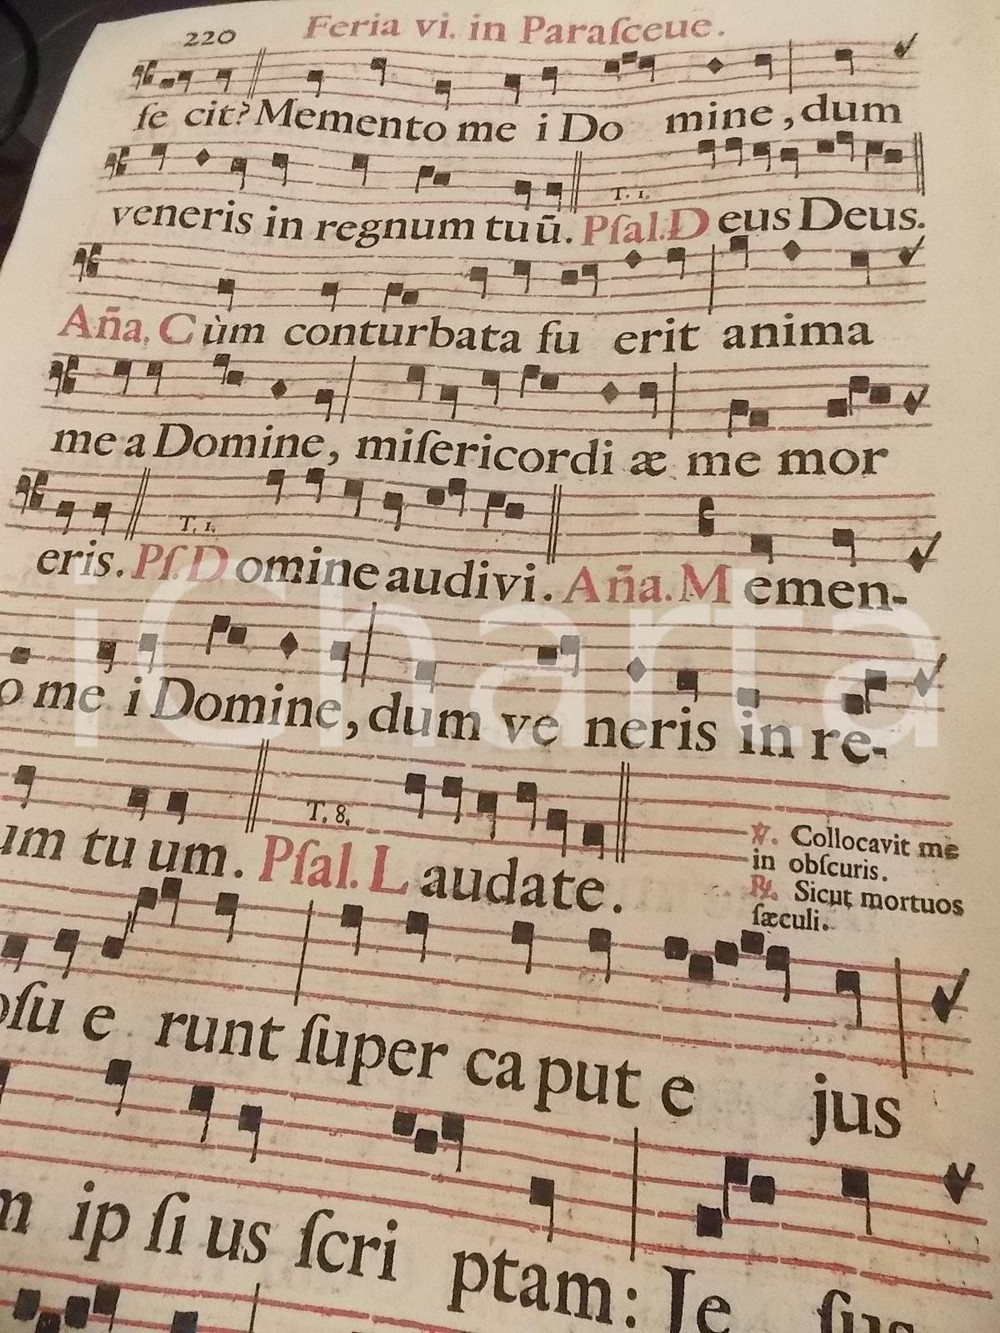 220 Feria vi. in Paraſceue.
fe cit? Memento me i Do mine, dum
T. 1.
veneris in regnum tuū. Pſal. Deus Deus.
Aña. Cùm conturbata fu erit anima
me a Domine, miſericordi æ me mor
T. 1.
eris. Pſ. Domine audivi. Aña. Memen-
o me i Domine, dum ve neris in re-
T. 8.
um tu um. Pſal. Laudate.
℣. Collocavit me
in obſcuris.
℟. Sicut mortuos
ſæculi.
oſu e runt ſuper ca put e jus
m ip ſi us ſcri ptam: Je ſus
iCharta